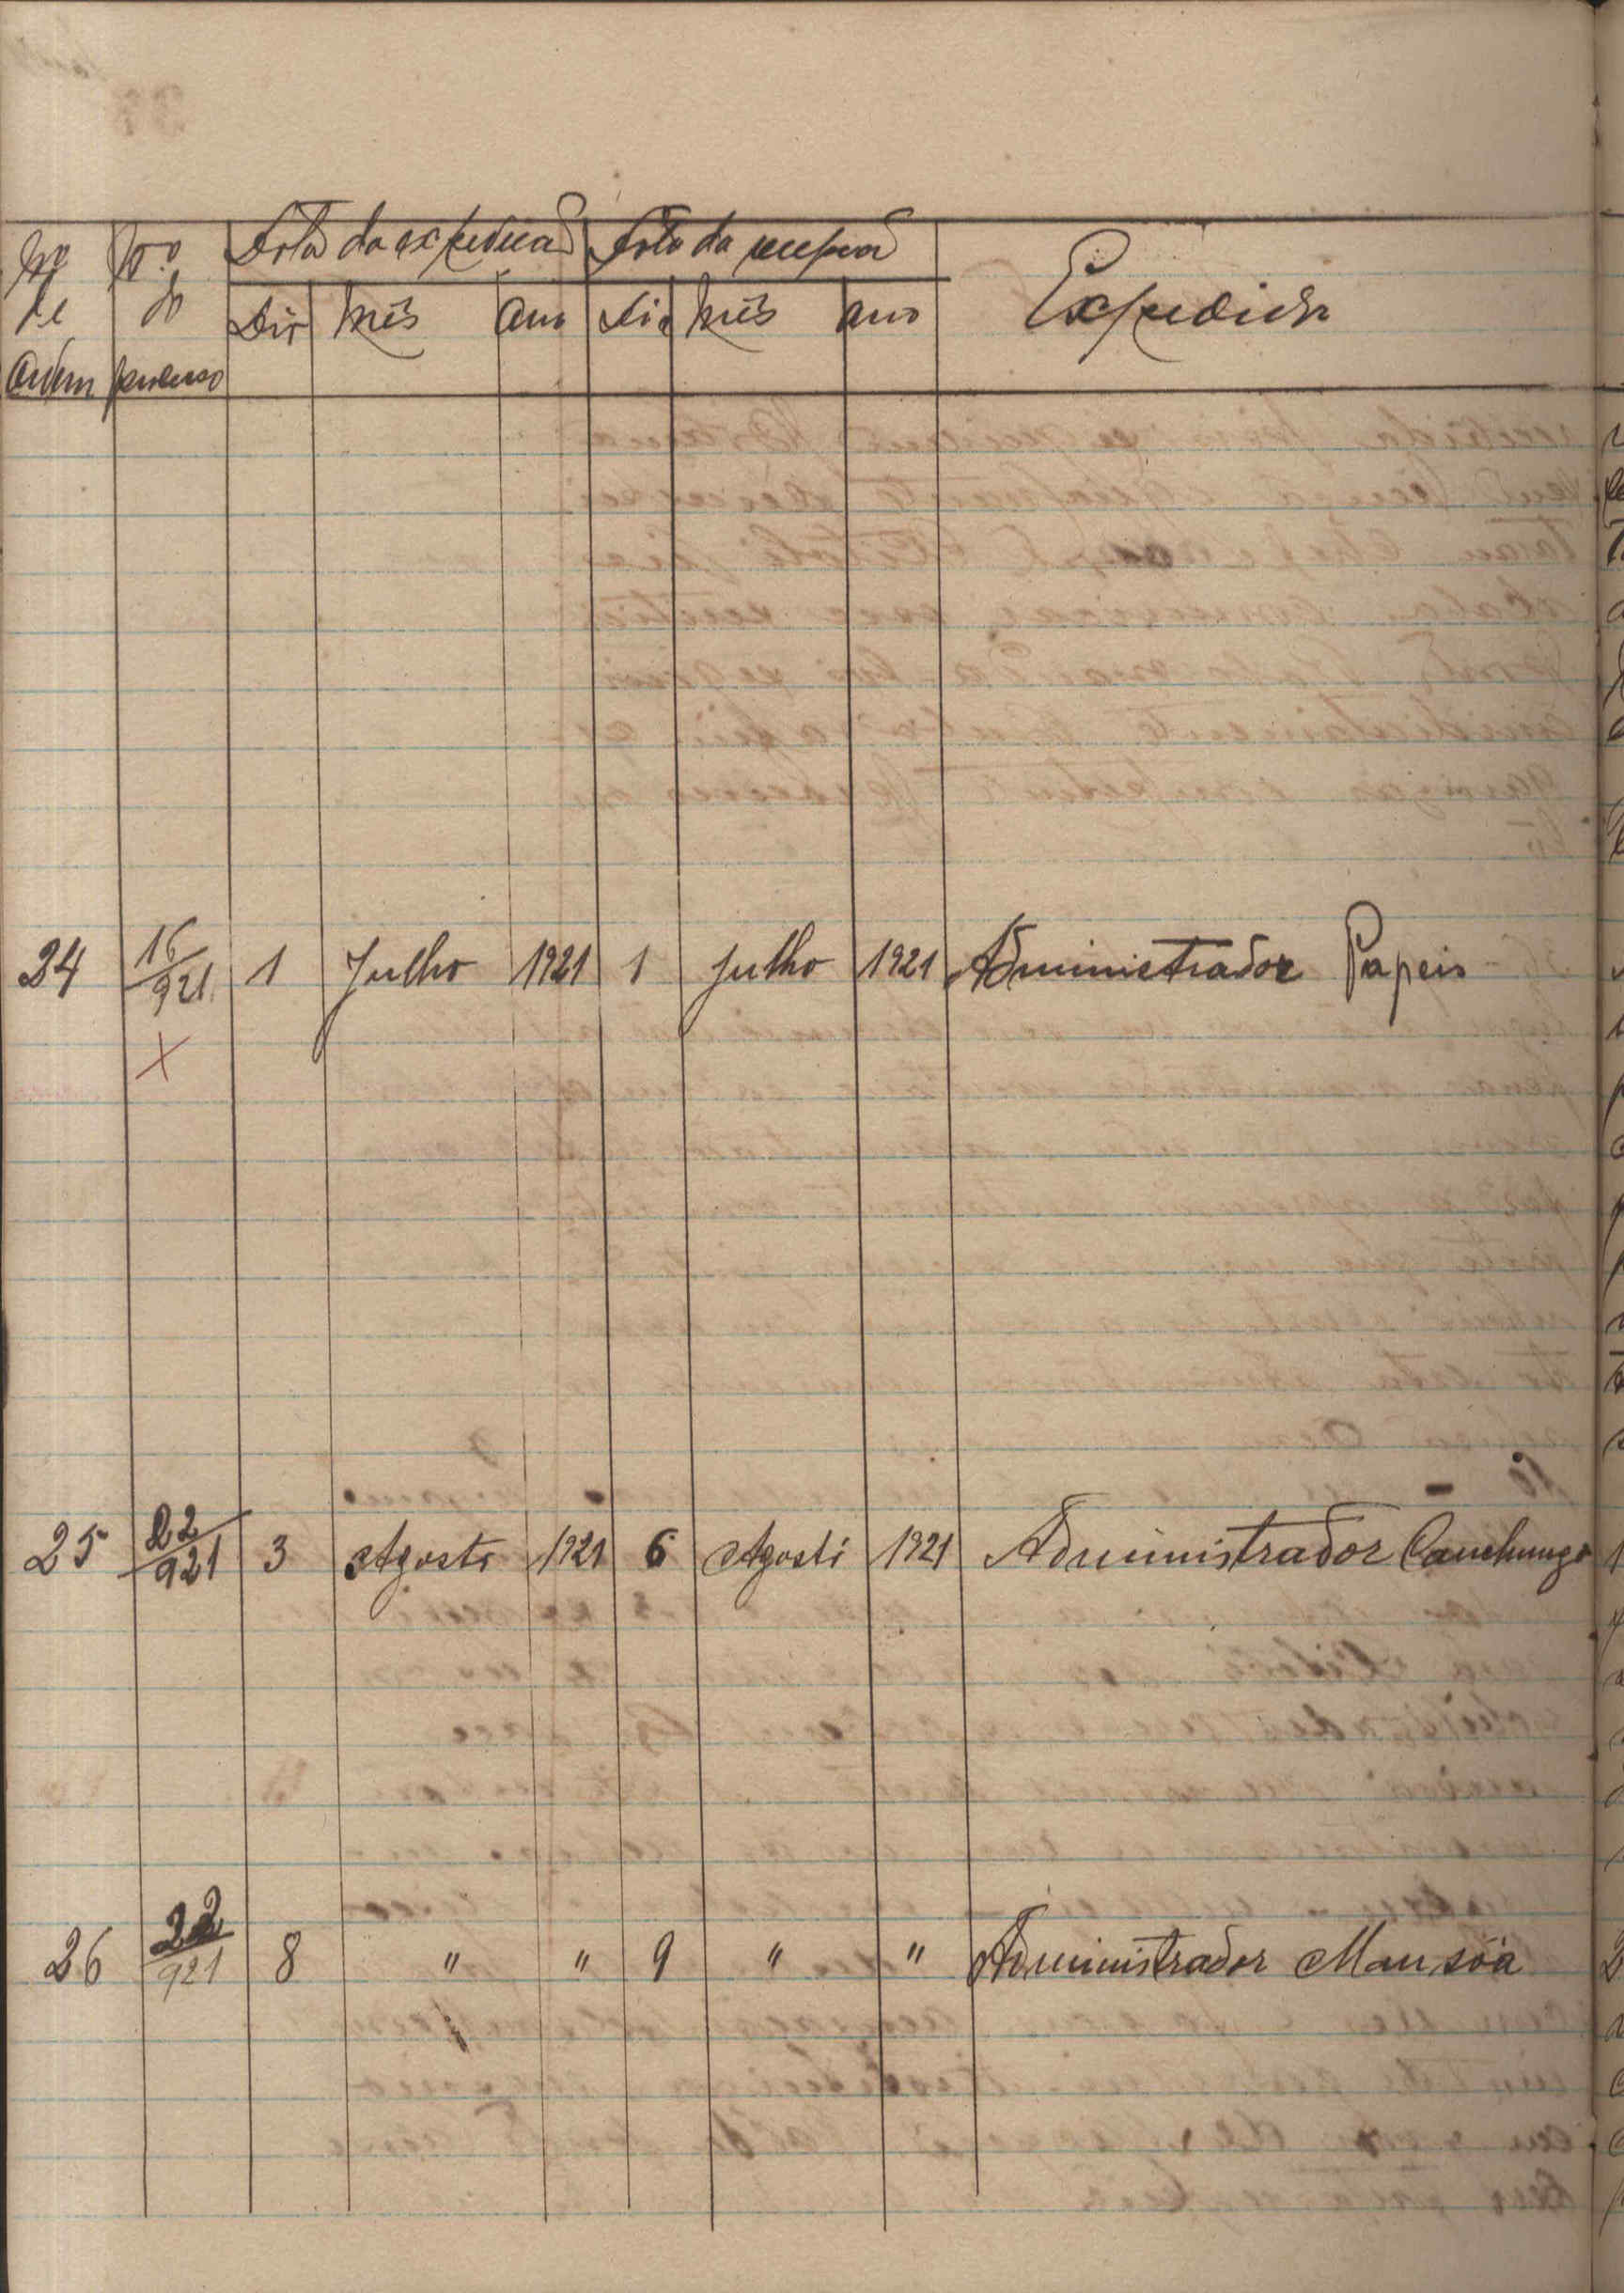 Nº de Ordem Nº do processo Data da expedição Data da recepção Expedidor
Dia Mês Ano Dia Mês Ano
24 16/921 1 Julho 1921 1 Julho 1921 Administrador Papeis
X
25 22/921 3 Agosto 1921 6 Agosto 1921 Administrador Canchungo
26 22/921 8 " " 9 " " Administrador Mansôa